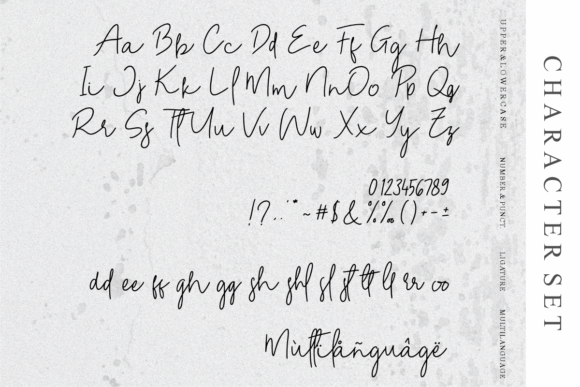 Aa Bb Cc Dd Ee Ff Gg Hh
Ii Jj Kk Ll Mm Nn Oo Pp Qq
Rr Ss Tt Uu Vv Ww Xx Yy Zz
0123456789
!?..'" ~ # $ & % ‰ () + - ±
dd ee ff gh gg sh shl sl st tt ll rr oo
Mùltilåñguâgë
UPPER & LOWERCASE
NUMBER & PUNCT
LIGATURE
MULTILANGUAGE
CHARACTER SET